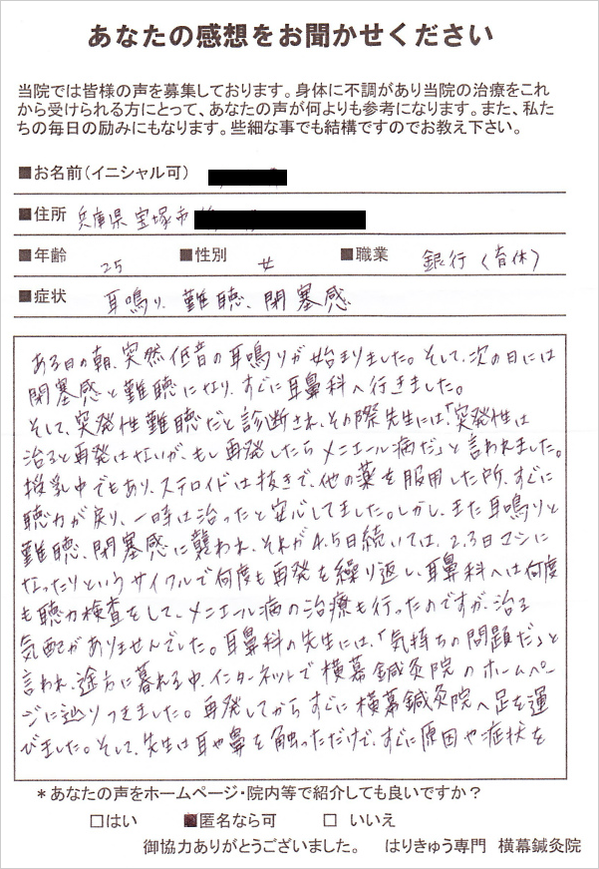 あなたの感想をお聞かせください
当院では皆様の声を募集しております。身体に不調があり当院の治療をこれ
から受けられる方にとって、あなたの声が何よりも参考になります。また、私た
ちの毎日の励みにもなります。些細な事でも結構ですのでお教え下さい。
■お名前(イニシャル可)
■住所 兵庫県宝塚市
■年齢 25 ■性別 女 ■職業 銀行(育休)
■症状 耳鳴り、難聴、閉塞感
ある日の朝、突然低音の耳鳴りが始まりました。そして、次の日には
閉塞感と難聴になり、すぐに耳鼻科へ行きました。
そして、突発性難聴だと診断され、その際先生には、「突発性は
治ると再発はないが、もし再発したらメニエール病だ」と言われました。
授乳中でもあり、ステロイドは抜きで、他の薬を服用した所、すぐに
聴力が戻り、一時は治ったと安心してました。しかし、また耳鳴りと
難聴、閉塞感に襲われ、それが4.5日続いては、2.3日マシに
なったりというサイクルで何度も再発を繰り返し、耳鼻科へは何度
も聴力検査をして、メニエール病の治療も行ったのですが、治る
気配がありませんでした。耳鼻科の先生には、「気持ちの問題だ」と
言われ、途方に暮れる中、インターネットで横幕鍼灸院のホームペー
ジに辿りつきました。再発してからすぐに横幕鍼灸院へ足を運
びました。そして、先生は耳や鼻を触っただけで、すぐに原因や症状を
*あなたの声をホームページ・院内等で紹介しても良いですか?
□はい ■匿名なら可 □ いいえ
御協力ありがとうございました。 はりきゅう専門 横幕鍼灸院